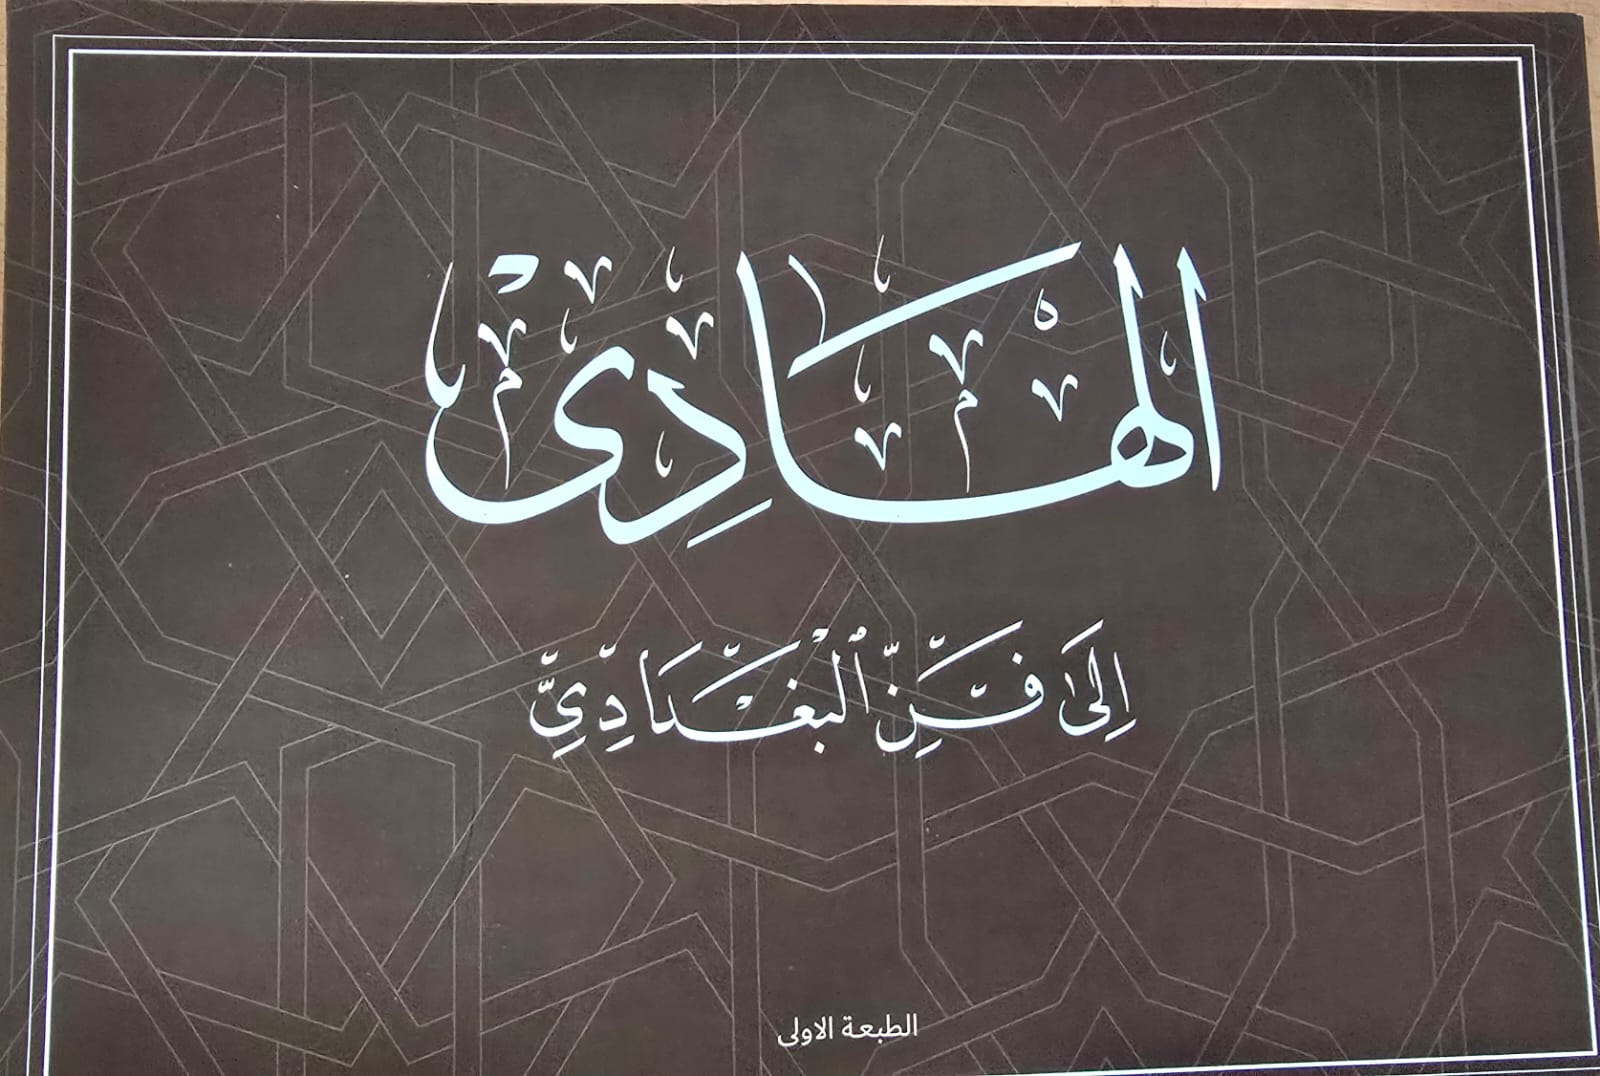 الهَادِى
اِلَى فَنِّ ٱلْبَغْدَادِيِّ
الطبعة الاولى